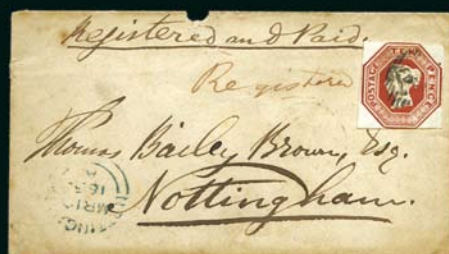 Registered and Paid.
Registered
POSTAGE TEN PENCE
Thomas Bailey Brown, Esq.
Nottingham.